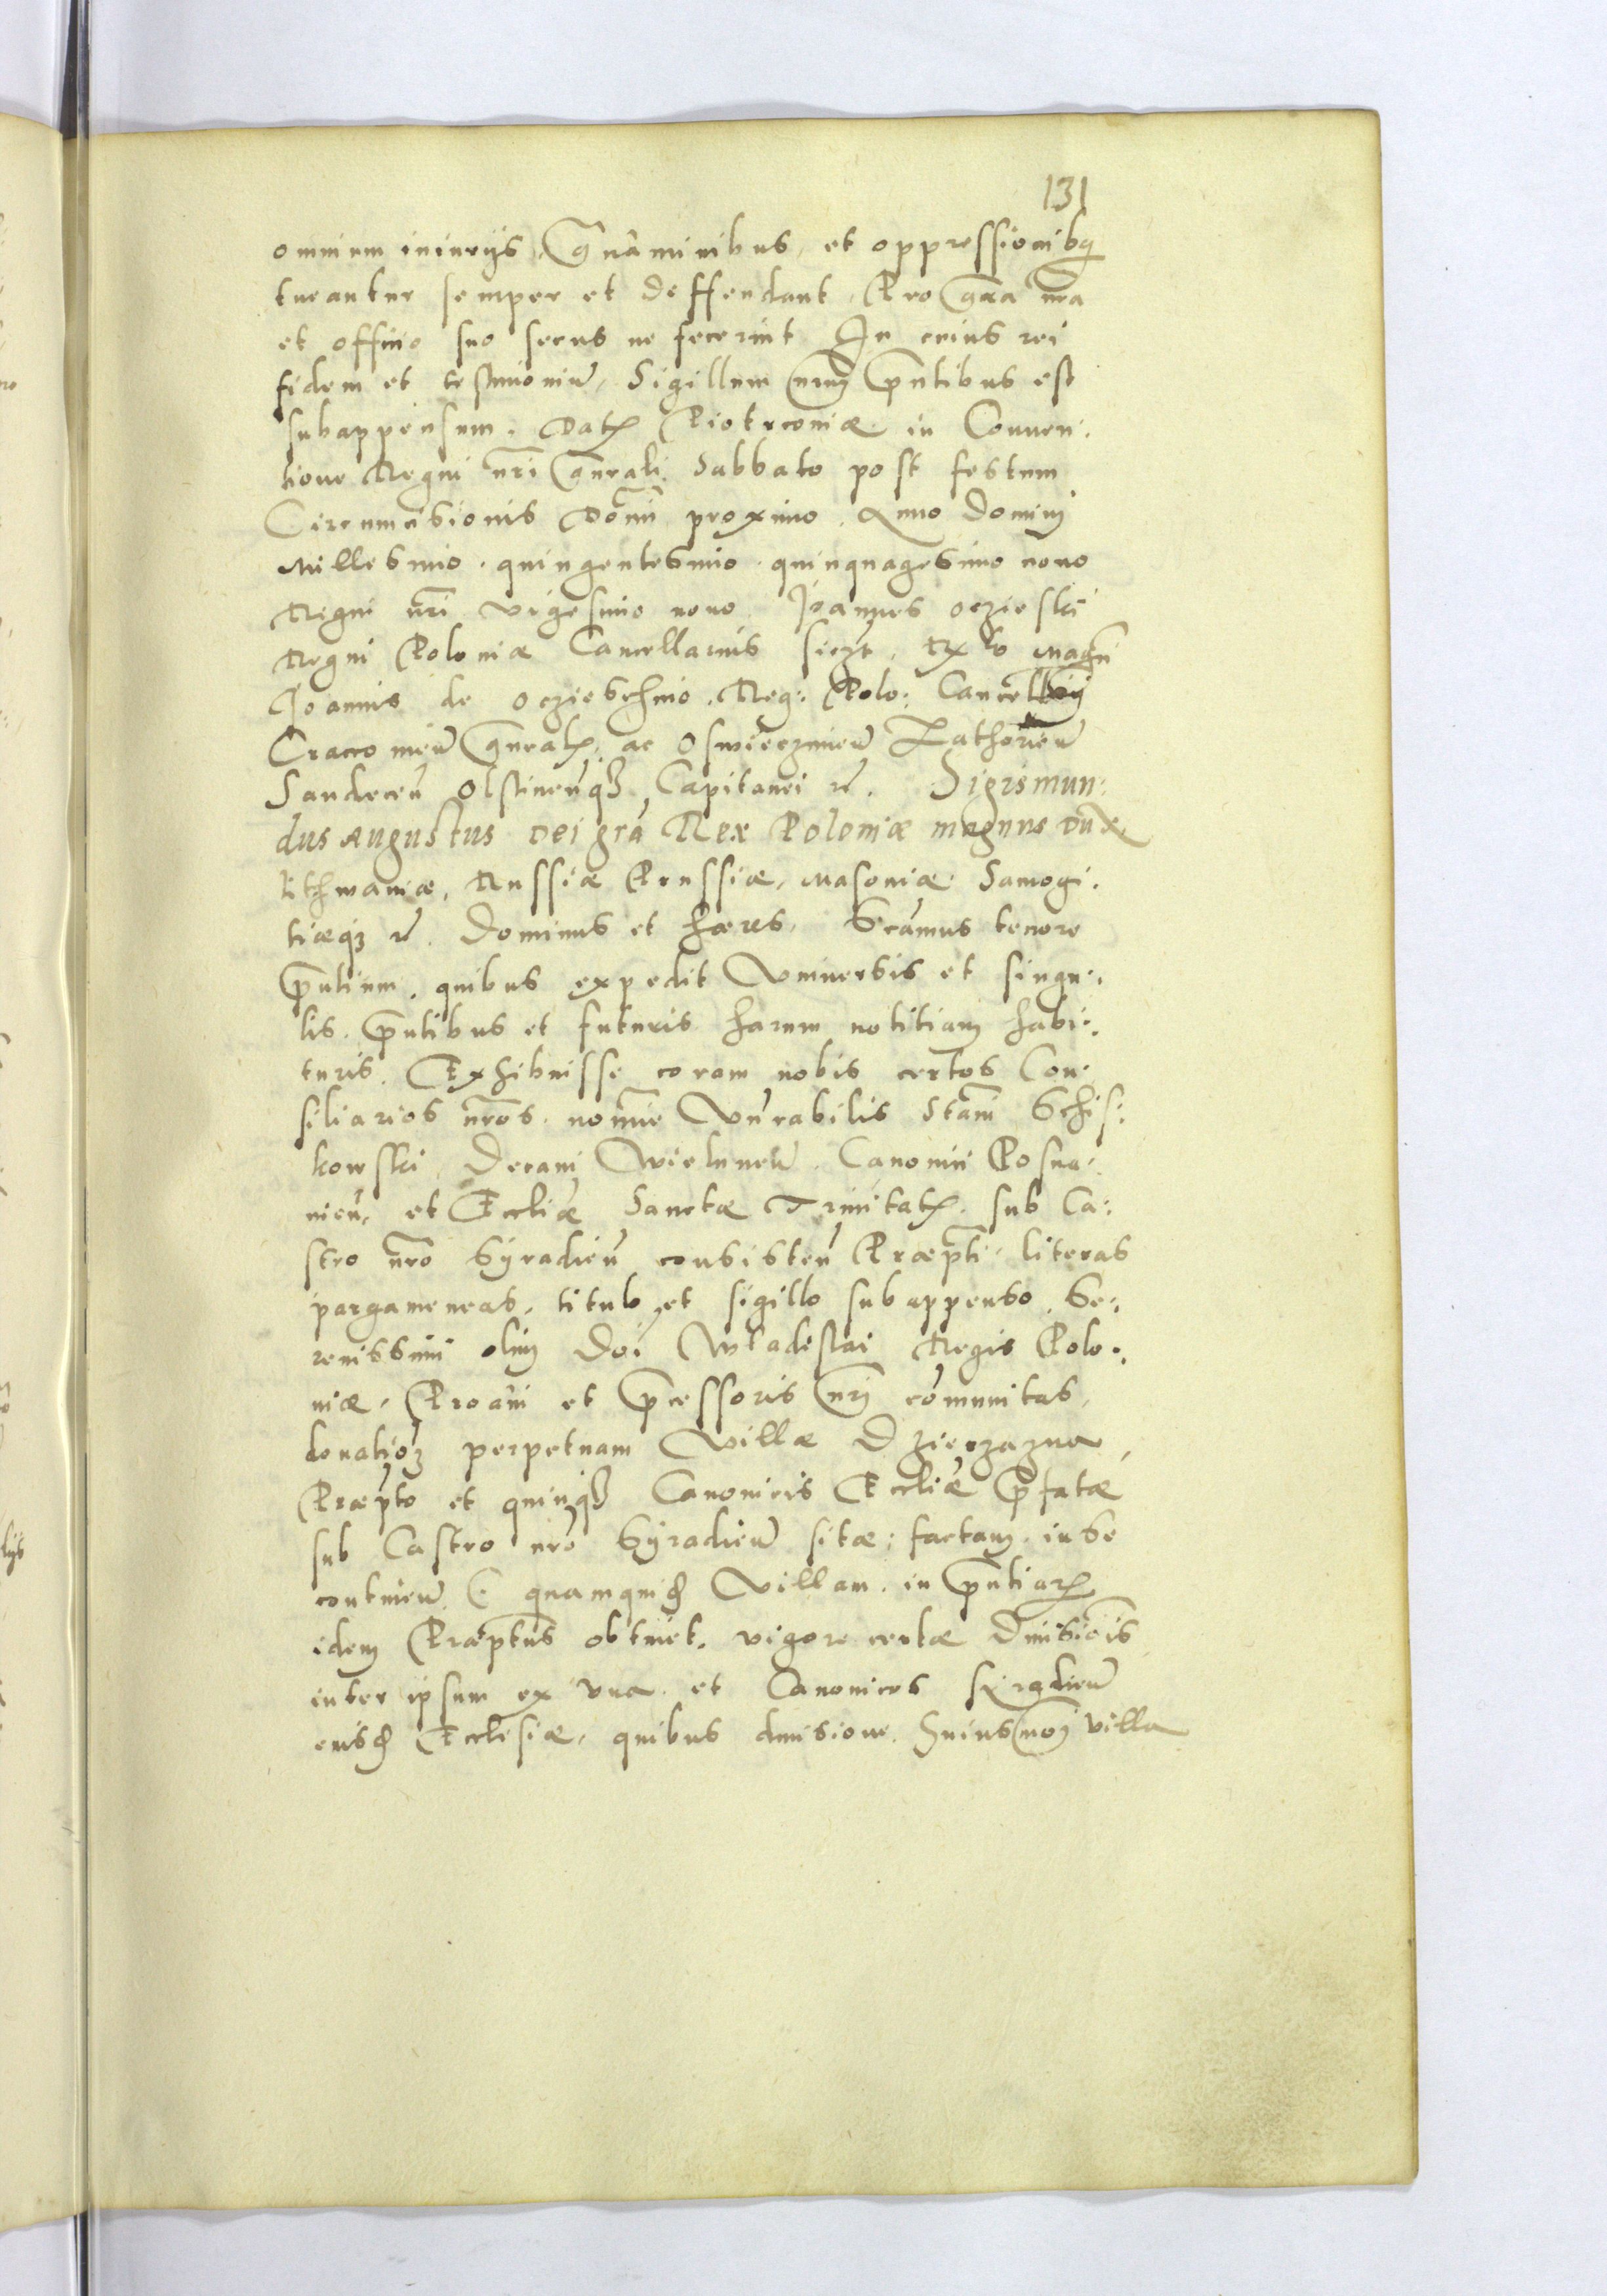 131
omnium iniurijs, Grãminibus, et oppressionibq
tueantur semper et deffendant, Pro grãa nrã
et officio suo secus ne fecerint In cuius rei
fidem et testimoniũ, Sigillum nrũm prñtibus est
subappensum. Datꝭ Piotrconiæ in Conuen:
tione Regni nrĩ gñrali Sabbato post festum
Circumcisionis Domĩni proximo. Anno Dominj
Millesimo quingentesimo quinquagesimo nono
Regni nrĩ vigesimo nono Joannes oczieski
Regni Poloniæ Cancellarius sſcrpt. Rᵉˡᵒ Magñ
Joannis de ocziesſchino, Reg: Polo: Cancellarij
Cracouieñ gñralꝭ, ac Oswieczimeñ Zathorieñ
Sandeceñ Olstineñqꝫ Capitanei ꝛc. Sigismun:
dus Augustus Dei grã Rex Poloniæ magnus Dux
Lithwaniæ, Russiæ Prussiæ, Masouiæ Samogi:
tiæqꝫ ꝛc. Dominus et hæres. Scãmus tenore
prñtium, quibus expedit Vniuersis et singu:
lis prñtibus et futuris harum notitiam habi:
turis. Exhibuisse coram nobis certos Con:
siliarios nrõs nomĩe Vnrãbilis Stanĩ Schis:
kowski Decani Wieluneñ Canonici Posna:
nieñ, et Eccliæ Sanctæ Trinitatꝭ sub Ca:
stro nrõ Syradieñ consisteñ Præpti literas
pargameneas, titulo et sigillo subappenso Se:
renissimi olim Doĩ Wladislai Regis Polo:
niæ, Proaũi et præcessoris nrĩ cõmunitas,
donatioẽm perpetuam Villæ Dzierzazna
Præpto et quinqꝫ Canonicis Eccliæ præfatæ
sub Castro nrõ Syradieñ sitæ: factam in se
contineñ (: quamquidẽ Villam in prñtiarꝭ
idem Præptus obtinet, vigore certæ Diuisioĩs
inter ipsum ex vna et Canonicos Siradieñ
eiusdẽ Ecclesiæ, quibus diuisione huiusmõi villa